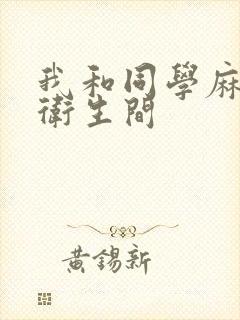 我和同學麻
衛生間
黃錫新